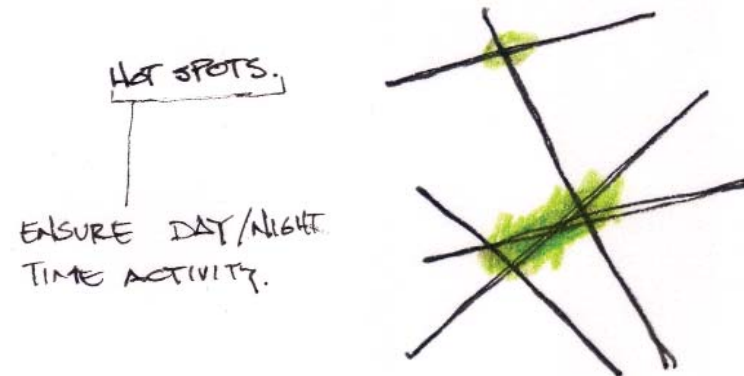 HOT SPOTS.
ENSURE DAY/NIGHT
TIME ACTIVITY.